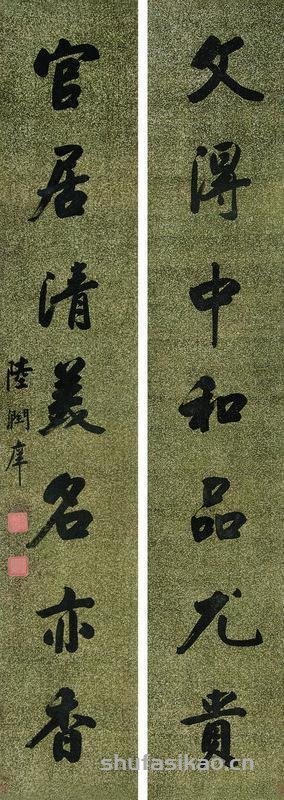 文得中和品尤貴
官居清美名亦香
陸潤庠
shufasikao.cn